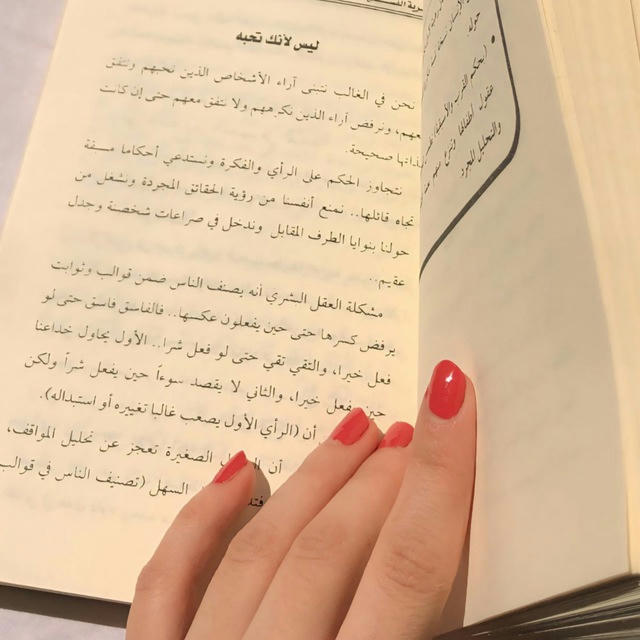 ليس لأنك تحبه
نحن في الغالب نتبنى آراء الأشخاص الذين نحبهم ونتفق
معهم، ونرفض آراء الذين نكرههم ولا نتفق معهم حتى إن كانت
بذاتها صحيحة.
نتجاوز الحكم على الرأي والفكرة ونستدعي أحكاما مسبقة
تجاه قائلها.. نمنع أنفسنا من رؤية الحقائق المجردة ونشغل من
حولنا بنوايا الطرف المقابل وندخل في صراعات شخصنة وجدل
عقيم..
مشكلة العقل البشري أنه يصنف الناس ضمن قوالب وثوابت
يرفض كسرها حتى حين يفعلون عكسها.. فالفاسق فاسق حتى لو
فعل خيرا، والتقي تقي حتى لو فعل شرا.. الأول يحاول خداعنا
حين يفعل خيرا، والثاني لا يقصد سوءاً حين يفعل شراً ولكن
أن (الرأي الأول يصعب غالبا تغييره أو استبداله).
أن الصغيرة تعجز عن تحليل المواقف،
السهل (تصنيف الناس في قوالب
حوله.
والتحليل المجرد